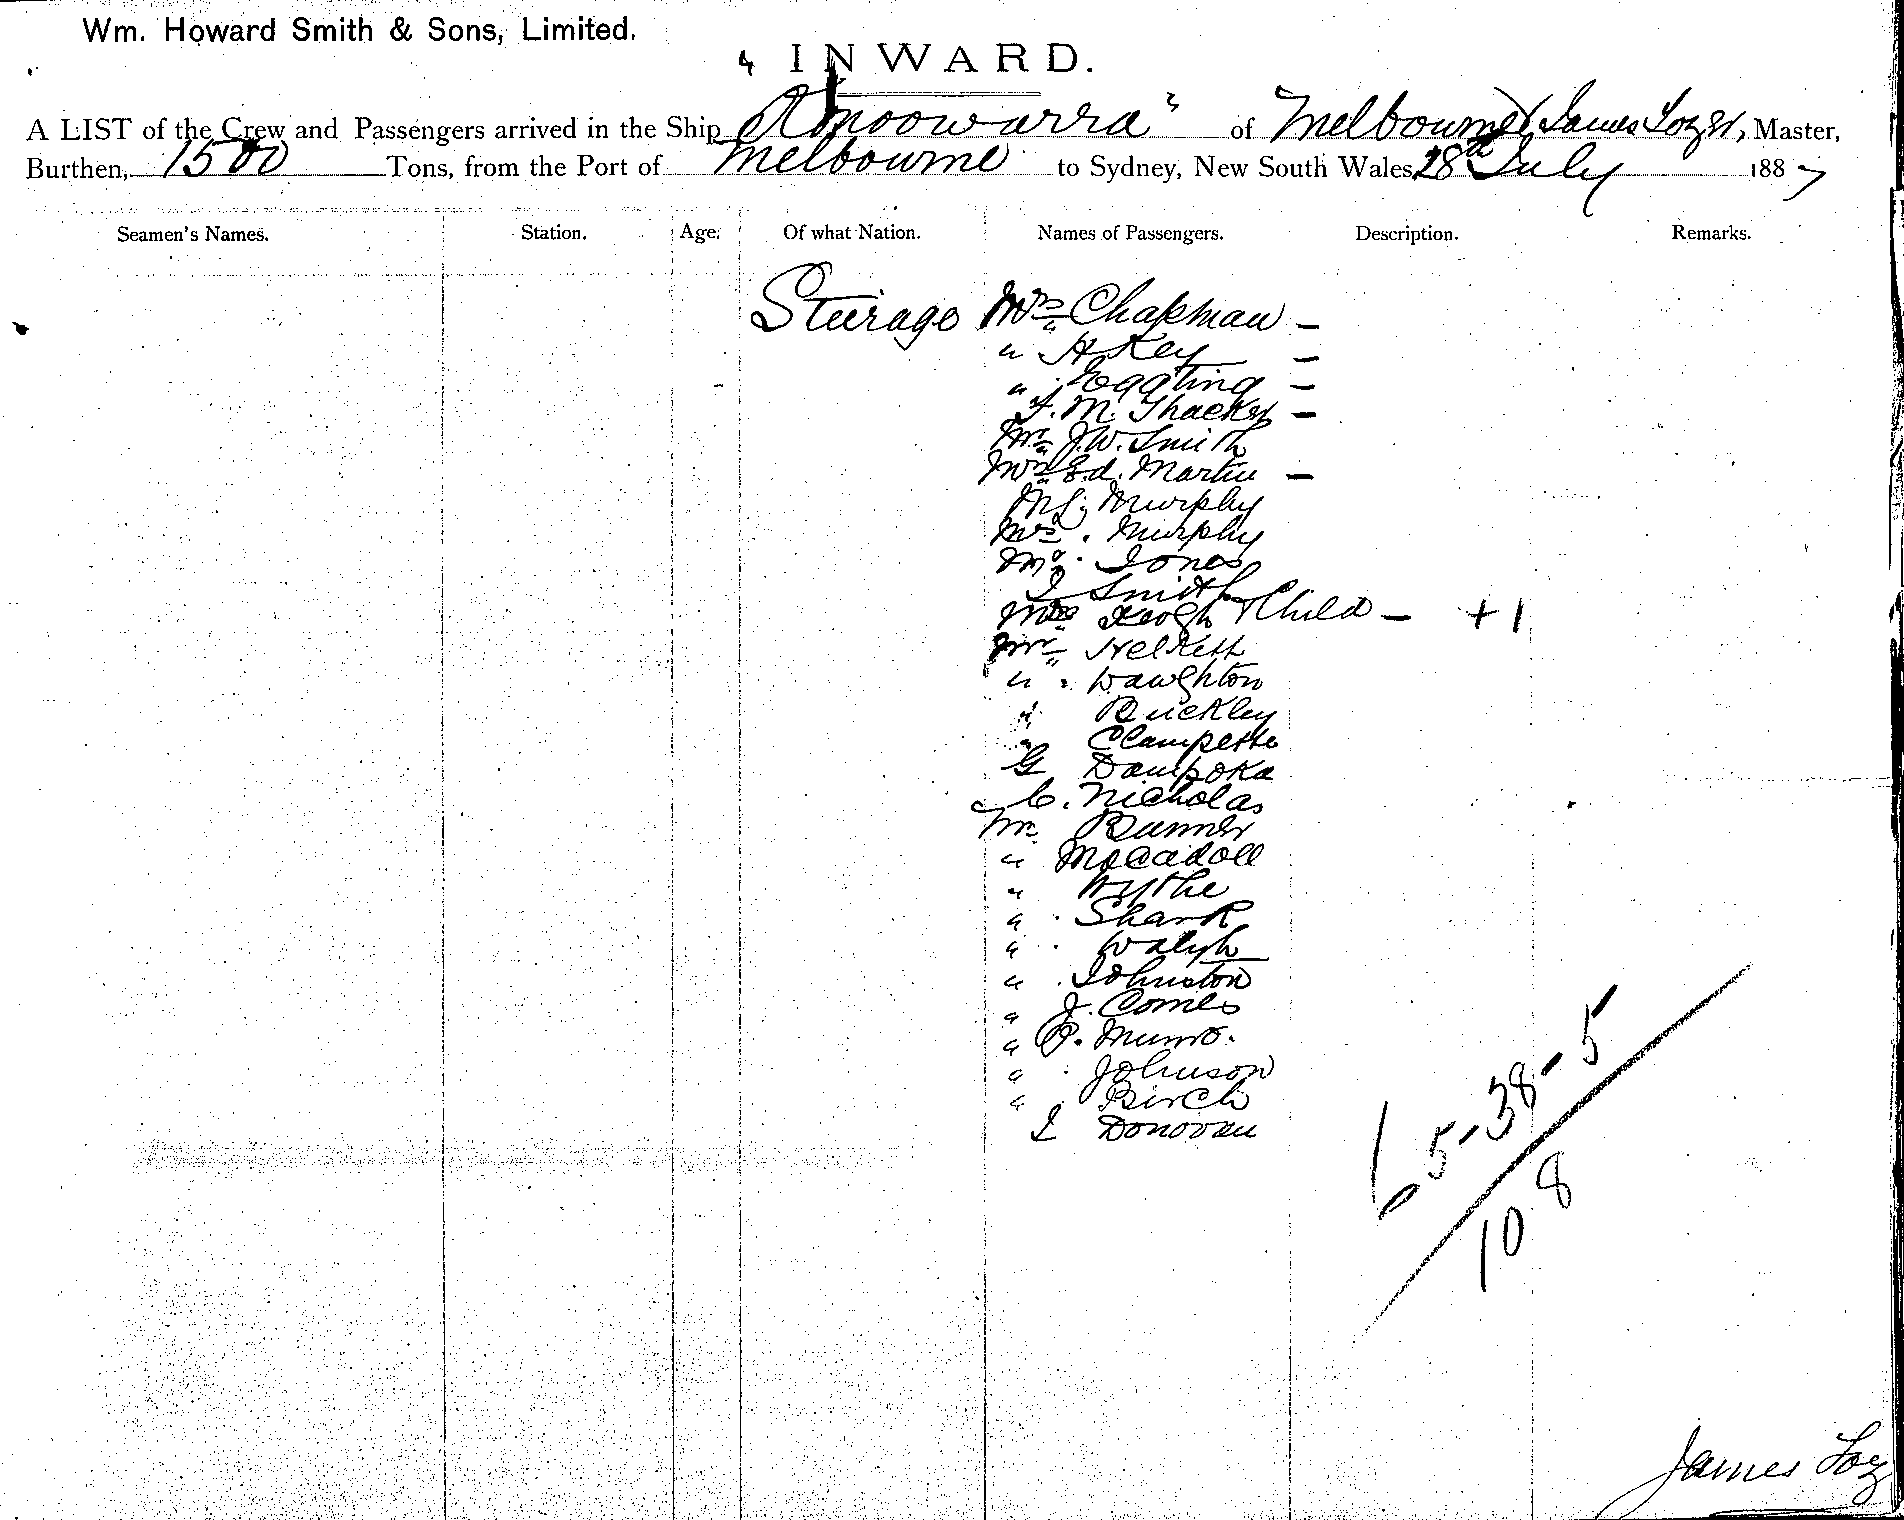 Wm. Howard Smith & Sons, Limited.
INWARD.
A LIST of the Crew and Passengers arrived in the Ship of Melbourne James Lozer, Master,
Burthen, 1500 Tons, from the Port of Melbourne to Sydney, New South Wales 28th July 1887
Seamen's Names. Station. Age. Of what Nation. Names of Passengers. Description. Remarks.
Steirage Mrs Chapman –
" H Key –
" Eggling –
F. M. Thacker –
Mr J.W. Smith
Mrs Ed. Martin –
Murphy
Mrs. Murphy
Jones
Smith
Keogh & Child – + 1
Mr Helkett
" Waughton
" Buckley
" Clampette
G Dampoka
C. Nicholas
Mr Bunner
" McCadoll
" Wythe
" Shark
" Walsh
" Johnston
" J. Comes
" P. Munro.
" Johnson
" Birch
J Donovan
65-38-5
108
James Loz